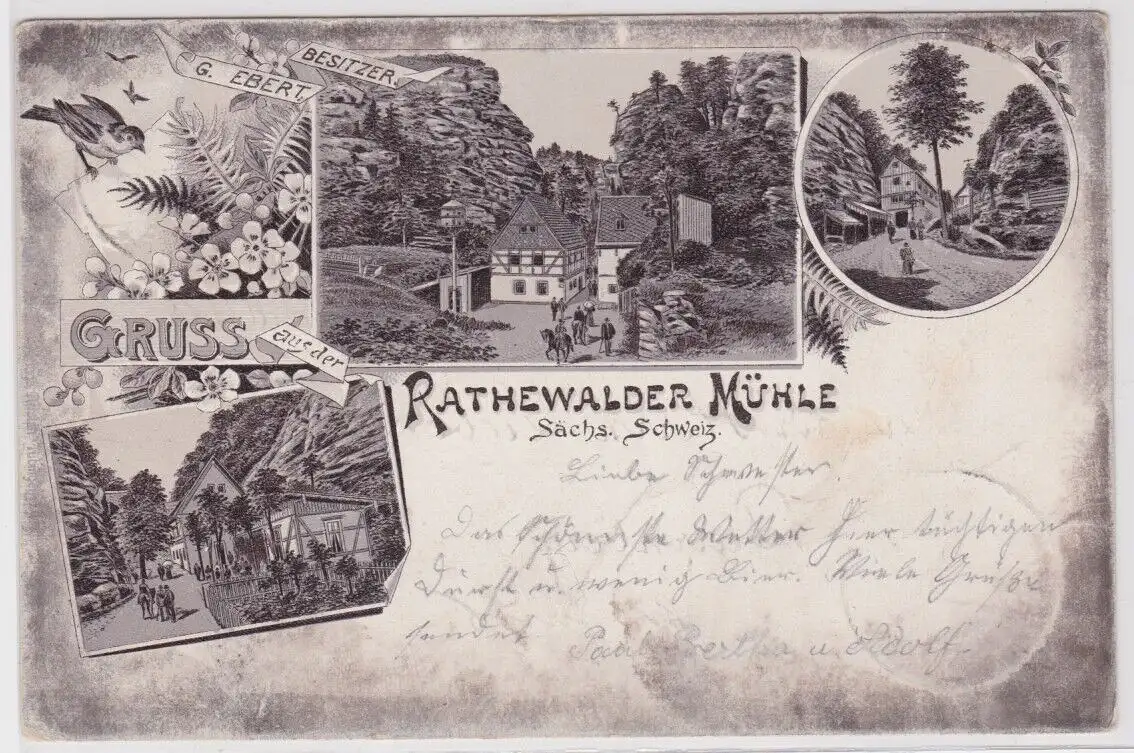 G. EBERT,
BESITZER.
GRUSS
aus der
RATHEWALDER MÜHLE
Sächs. Schweiz.
Liebe Schwester.
Das Schönste Wetter hier tüchtigen
Durst u. wenig Bier. Viele Grüße
sendet Paul Bertha u. Adolf.